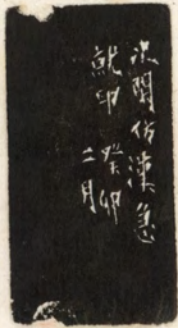 次閑仿漢急
就印 癸卯二月